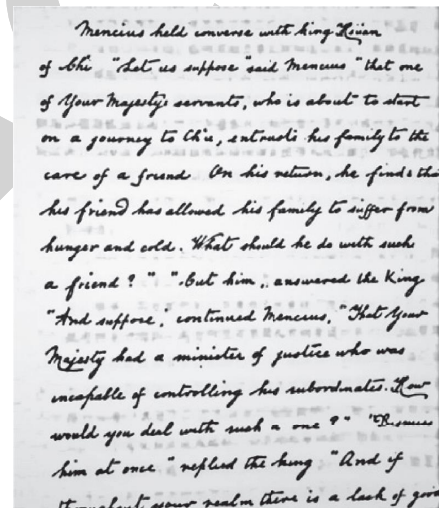 Mencius held converse with king Hsüan
of Chi "Let us suppose" said Mencius "that one
of Your Majesty's servants, who is about to start
on a journey to Ch'u, entrusts his family to the
care of a friend On his return, he finds tha
his friend has allowed his family to suffer from
hunger and cold. What should he do with such
a friend?" "Cut him", answered the King
"And suppose", continued Mencius, "that Your
Majesty had a minister of justice who was
incapable of controlling his subordinates. How
would you deal with such a one?" "Dismiss
him at once" replied the king "And if
throughout your realm there is a lack of good